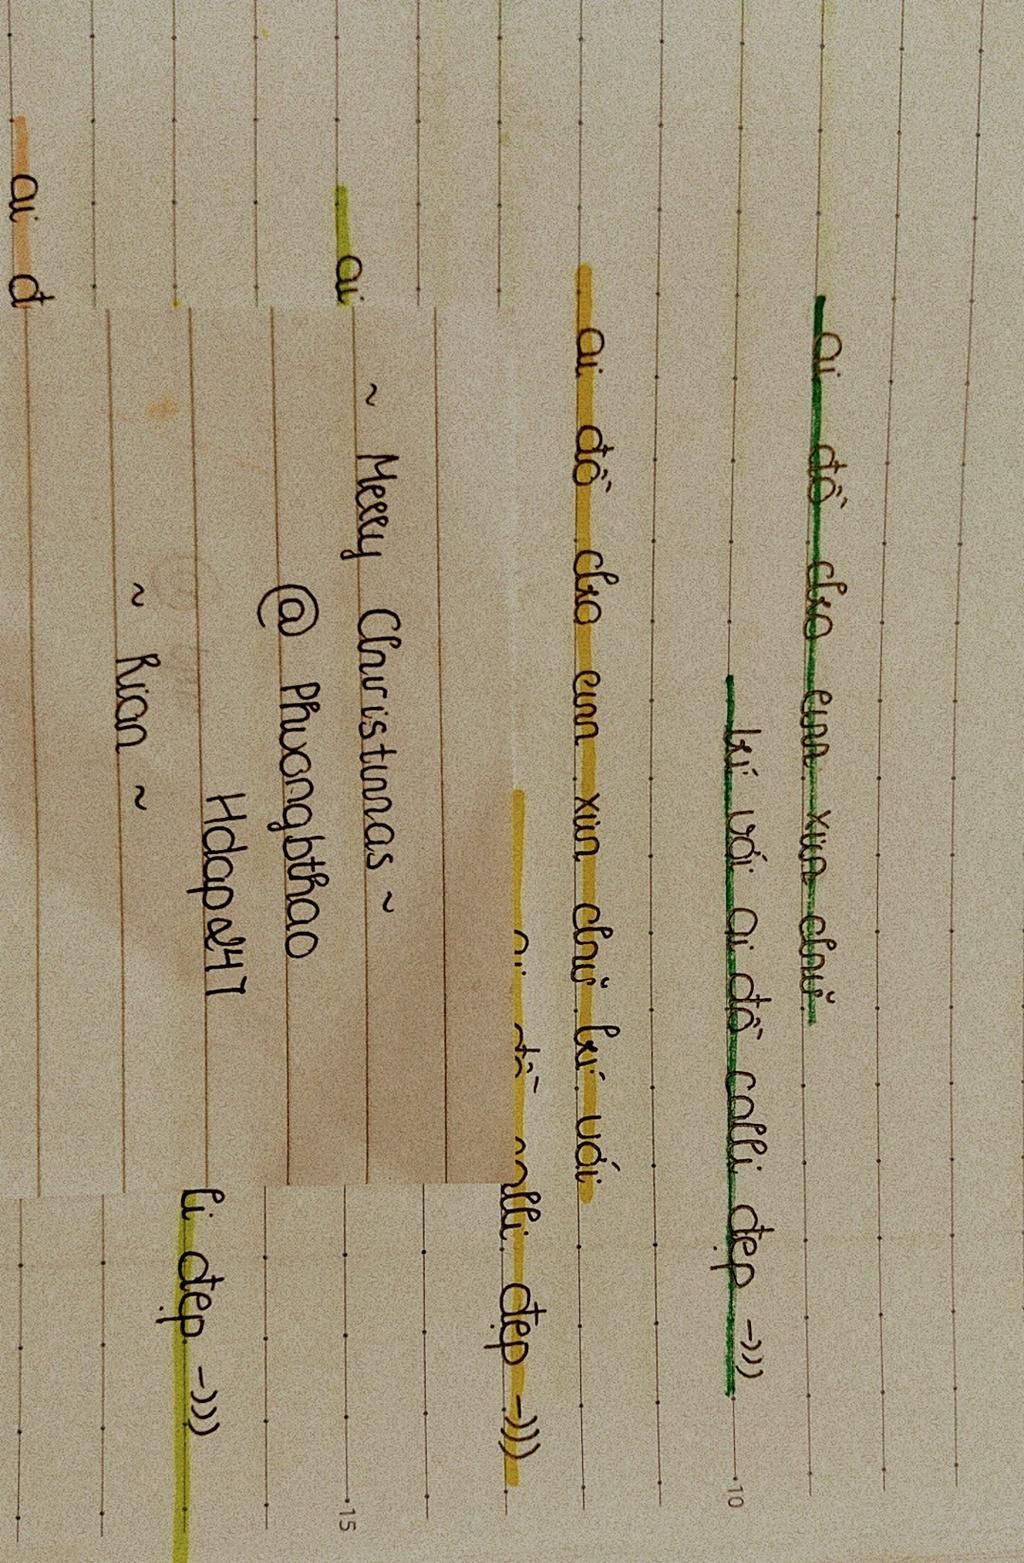 ai đồ cho em xin chữ
kí với ai đồ calli đẹp -)))
10
ai đồ cho em xin chữ kí với
ai đồ calli đẹp -)))
ai
15
~ Merry Christmas ~
@ Phuongbthao
Hdap247
~ Rian ~
li đẹp -)))
ai đ